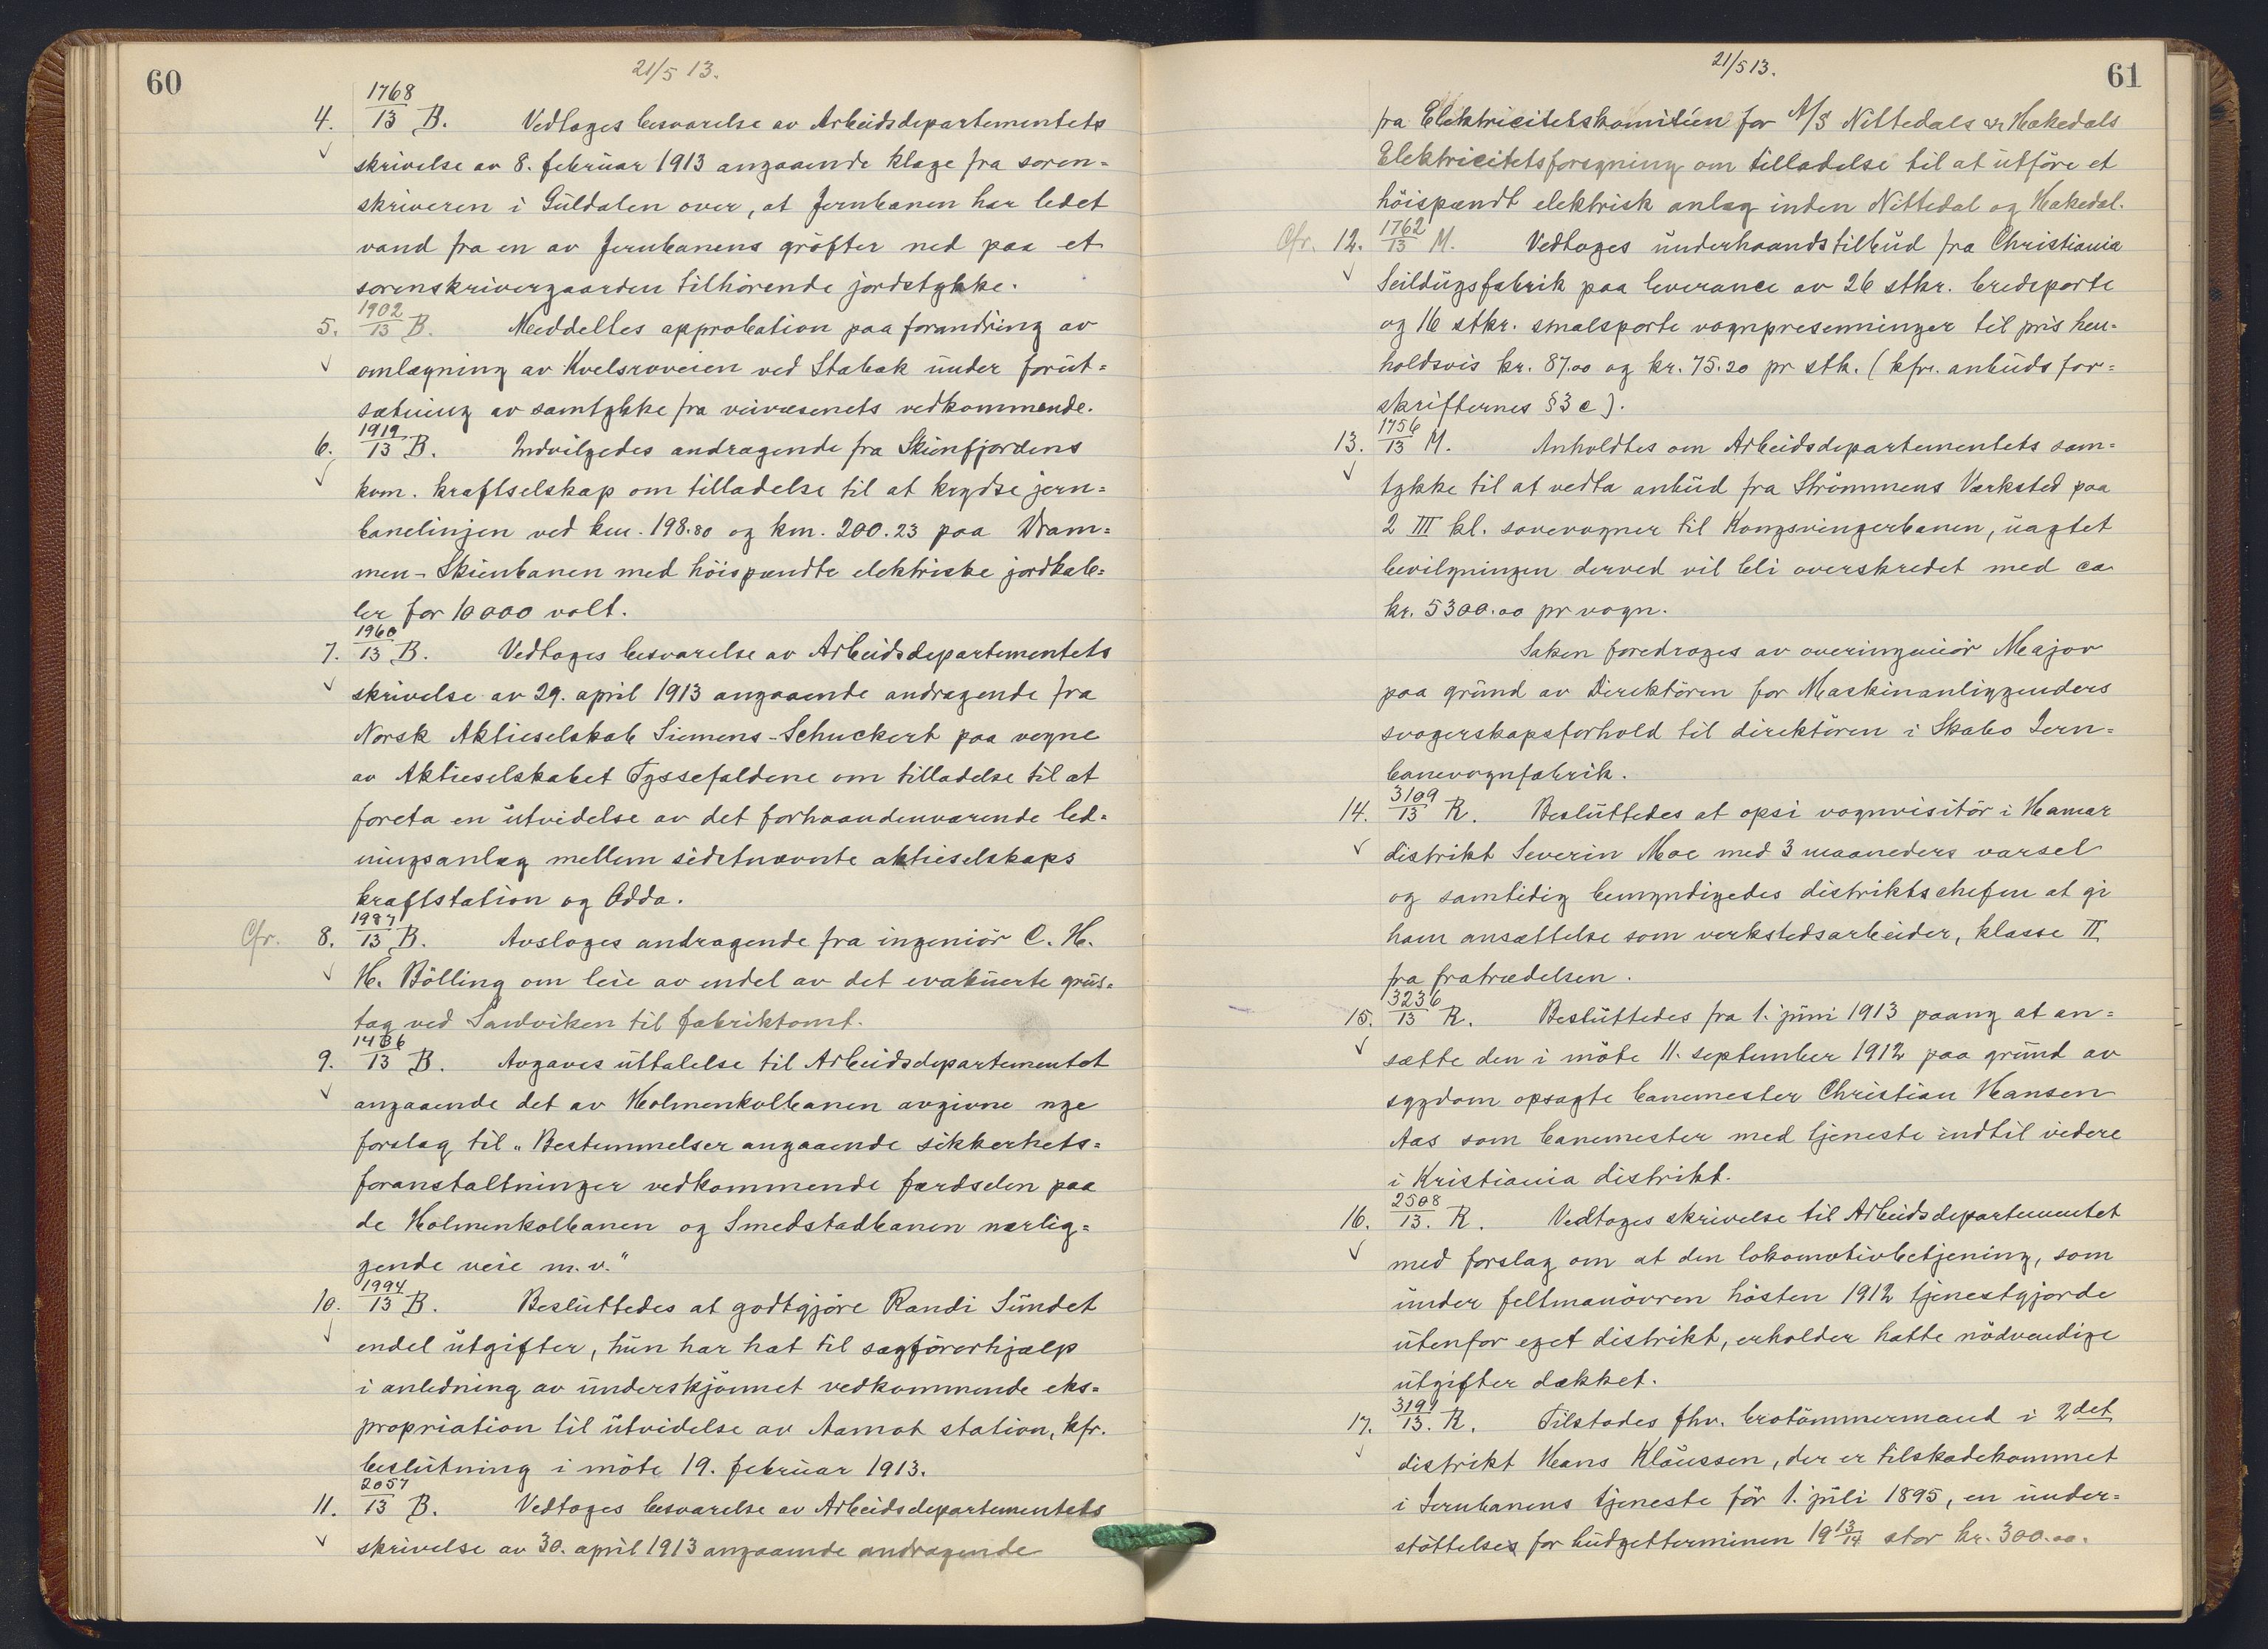 60
21/5 13.
1768
4. 13 B. Vedtoges besvarelse av Arbeidsdepartementets
skrivelse av 8. februar 1913 angaaende klage fra soren=
skriveren i Guldalen over, at Jernbanen har ledet
vand fra en av Jernbanens grøfter ned paa et
sorenskrivergaarden tilhørende jordstykke.
1902
5. 13 B. Meddeltes approbation paa forandring av
omlægning av Kvelsroveien ved Stabak under forut=
sætning av samtykke fra veivæsenets vedkommende.
1919
6. 13 B. Indvilgedes andragende fra Skiensfjordens
kom. kraftselskap om tilladelse til at krydse jern=
banelinjen ved km. 198.80 og km. 200.23 paa Dram=
men-Skienbanen med høispændte elektriske jordkab=
ler for 10 000 volt.
1960
7. 13 B. Vedtoges besvarelse av Arbeidsdepartementets
skrivelse av 29. april 1913 angaaende andragende fra
Norsk Aktieselskab Siemens-Schuckert paa vegne
av Aktieselskabet Tyssefaldene om tilladelse til at
foreta en utvidelse av det forhaandenværende led=
ningsanlæg mellem sidstnævnte aktieselskaps
kraftstation og Odda.
1987
Cfr. 8. 13 B. Avsloges andragende fra ingeniør C. H.
H. Bølling om leie av endel av det evakuerte grus=
tag ved Sandviken til fabriktomt.
1436
9. 13 B. Avgaves uttalelse til Arbeidsdepartementet
angaaende det av Holmenkolbanen avgivne nye
forslag til „Bestemmelser angaaende sikkerhets=
foranstaltninger vedkommende færdselen paa
de Holmenkolbanen og Smedstadbanen nærlig=
gende veie m. v."
1994
10. 13 B. Besluttedes at godtgjøre Randi Sundet
endel utgifter, hun har hat til sagførerhjælp
i anledning av underskjønnet vedkommende eks=
propriation til utvidelse av Aamot station, kfr.
beslutning i møte 19. februar 1913.
2057
11. 13 B. Vedtoges besvarelse av Arbeidsdepartementets
skrivelse av 30. april 1913 angaaende andragende
61
21/5 13.
fra Elektricitetskomitéen for A/S Nittedals & Hakedals
Elektricitetsforsyning om tilladelse til at utføre et
høispændt elektrisk anlæg inden Nittedal og Hakedal.
1762
Cfr. 12. 13 M. Vedtoges underhaandstilbud fra Christiania
Seildugsfabrik paa leverance av 26 stkr. bredsporte
og 16 stkr. smalsporte vognpresenninger til pris hen=
holdsvis kr. 87.00 og kr. 75.20 pr stk. (kfr. anbudsfor=
skrifternes § 3 c).
1756
13. 13 M. Anholdtes om Arbeidsdepartementets sam=
tykke til at vedta anbud fra Strømmens Værksted paa
2 III kl. sovevogner til Kongsvingerbanen, uagtet
bevilgningen derved vil bli overskredet med ca
kr. 5300.00 pr vogn.
Saken foredroges av overingeniør Major
paa grund av Direktøren for Maskinanliggenders
svogerskapsforhold til direktøren i Skabo Jern=
banevognfabrik.
3109
14. 13 R. Besluttedes at opsi vognvisitør i Hamar
distrikt Severin Moe med 3 maaneders varsel
og samtidig bemyndigedes distriktschefen at gi
ham ansættelse som verkstedsarbeider, klasse II
fra fratrædelsen.
3236
15. 13 R. Besluttedes fra 1. juni 1913 paany at an=
sætte den i møte 11. september 1912 paa grund av
sygdom opsagte banemester Christian Hansen
Aas som banemester med tjeneste indtil videre
i Kristiania distrikt.
2508
16. 13. R. Vedtoges skrivelse til Arbeidsdepartementet
med forslag om at den lokomotivbetjening, som
under feltmanøvren høsten 1912 tjenestgjorde
utenfor eget distrikt, erholder hatte nødvendige
utgifter dækket.
3191
17. 13. R. Tilstodes fhv. brotømmermand i 2det
distrikt Hans Klaussen, der er tilskadekommet
i Jernbanens tjeneste før 1. juli 1895, en under=
støttelse for budgetterminen 19 13/14 stor kr. 300.00.